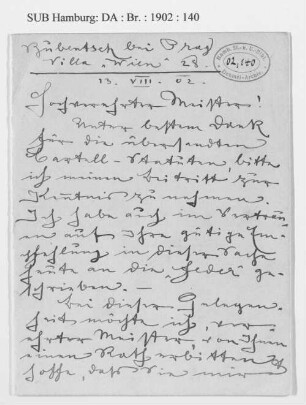 SUB Hamburg: DA : Br. : 1902 : 140
Bubentsch bei Prag
Villa „Wien" 28.
02,140
13. VIII. 02.
Hochverehrter Meister!
Unter bestem Dank
für die übersandten
Kartell-Statuten bitte
ich meinen Beitritt zur
Kenntnis zu nehmen.
Ich habe auch im Vertrau-
en auf Ihre gütige Em-
pfehlung in dieser Sache
heute an die Feder ge-
schrieben. —
Bei dieser Gelegen-
heit möchte ich, ver-
ehrter Meister, von Ihnen
einen Rath erbitten
hoffe, dass Sie mir